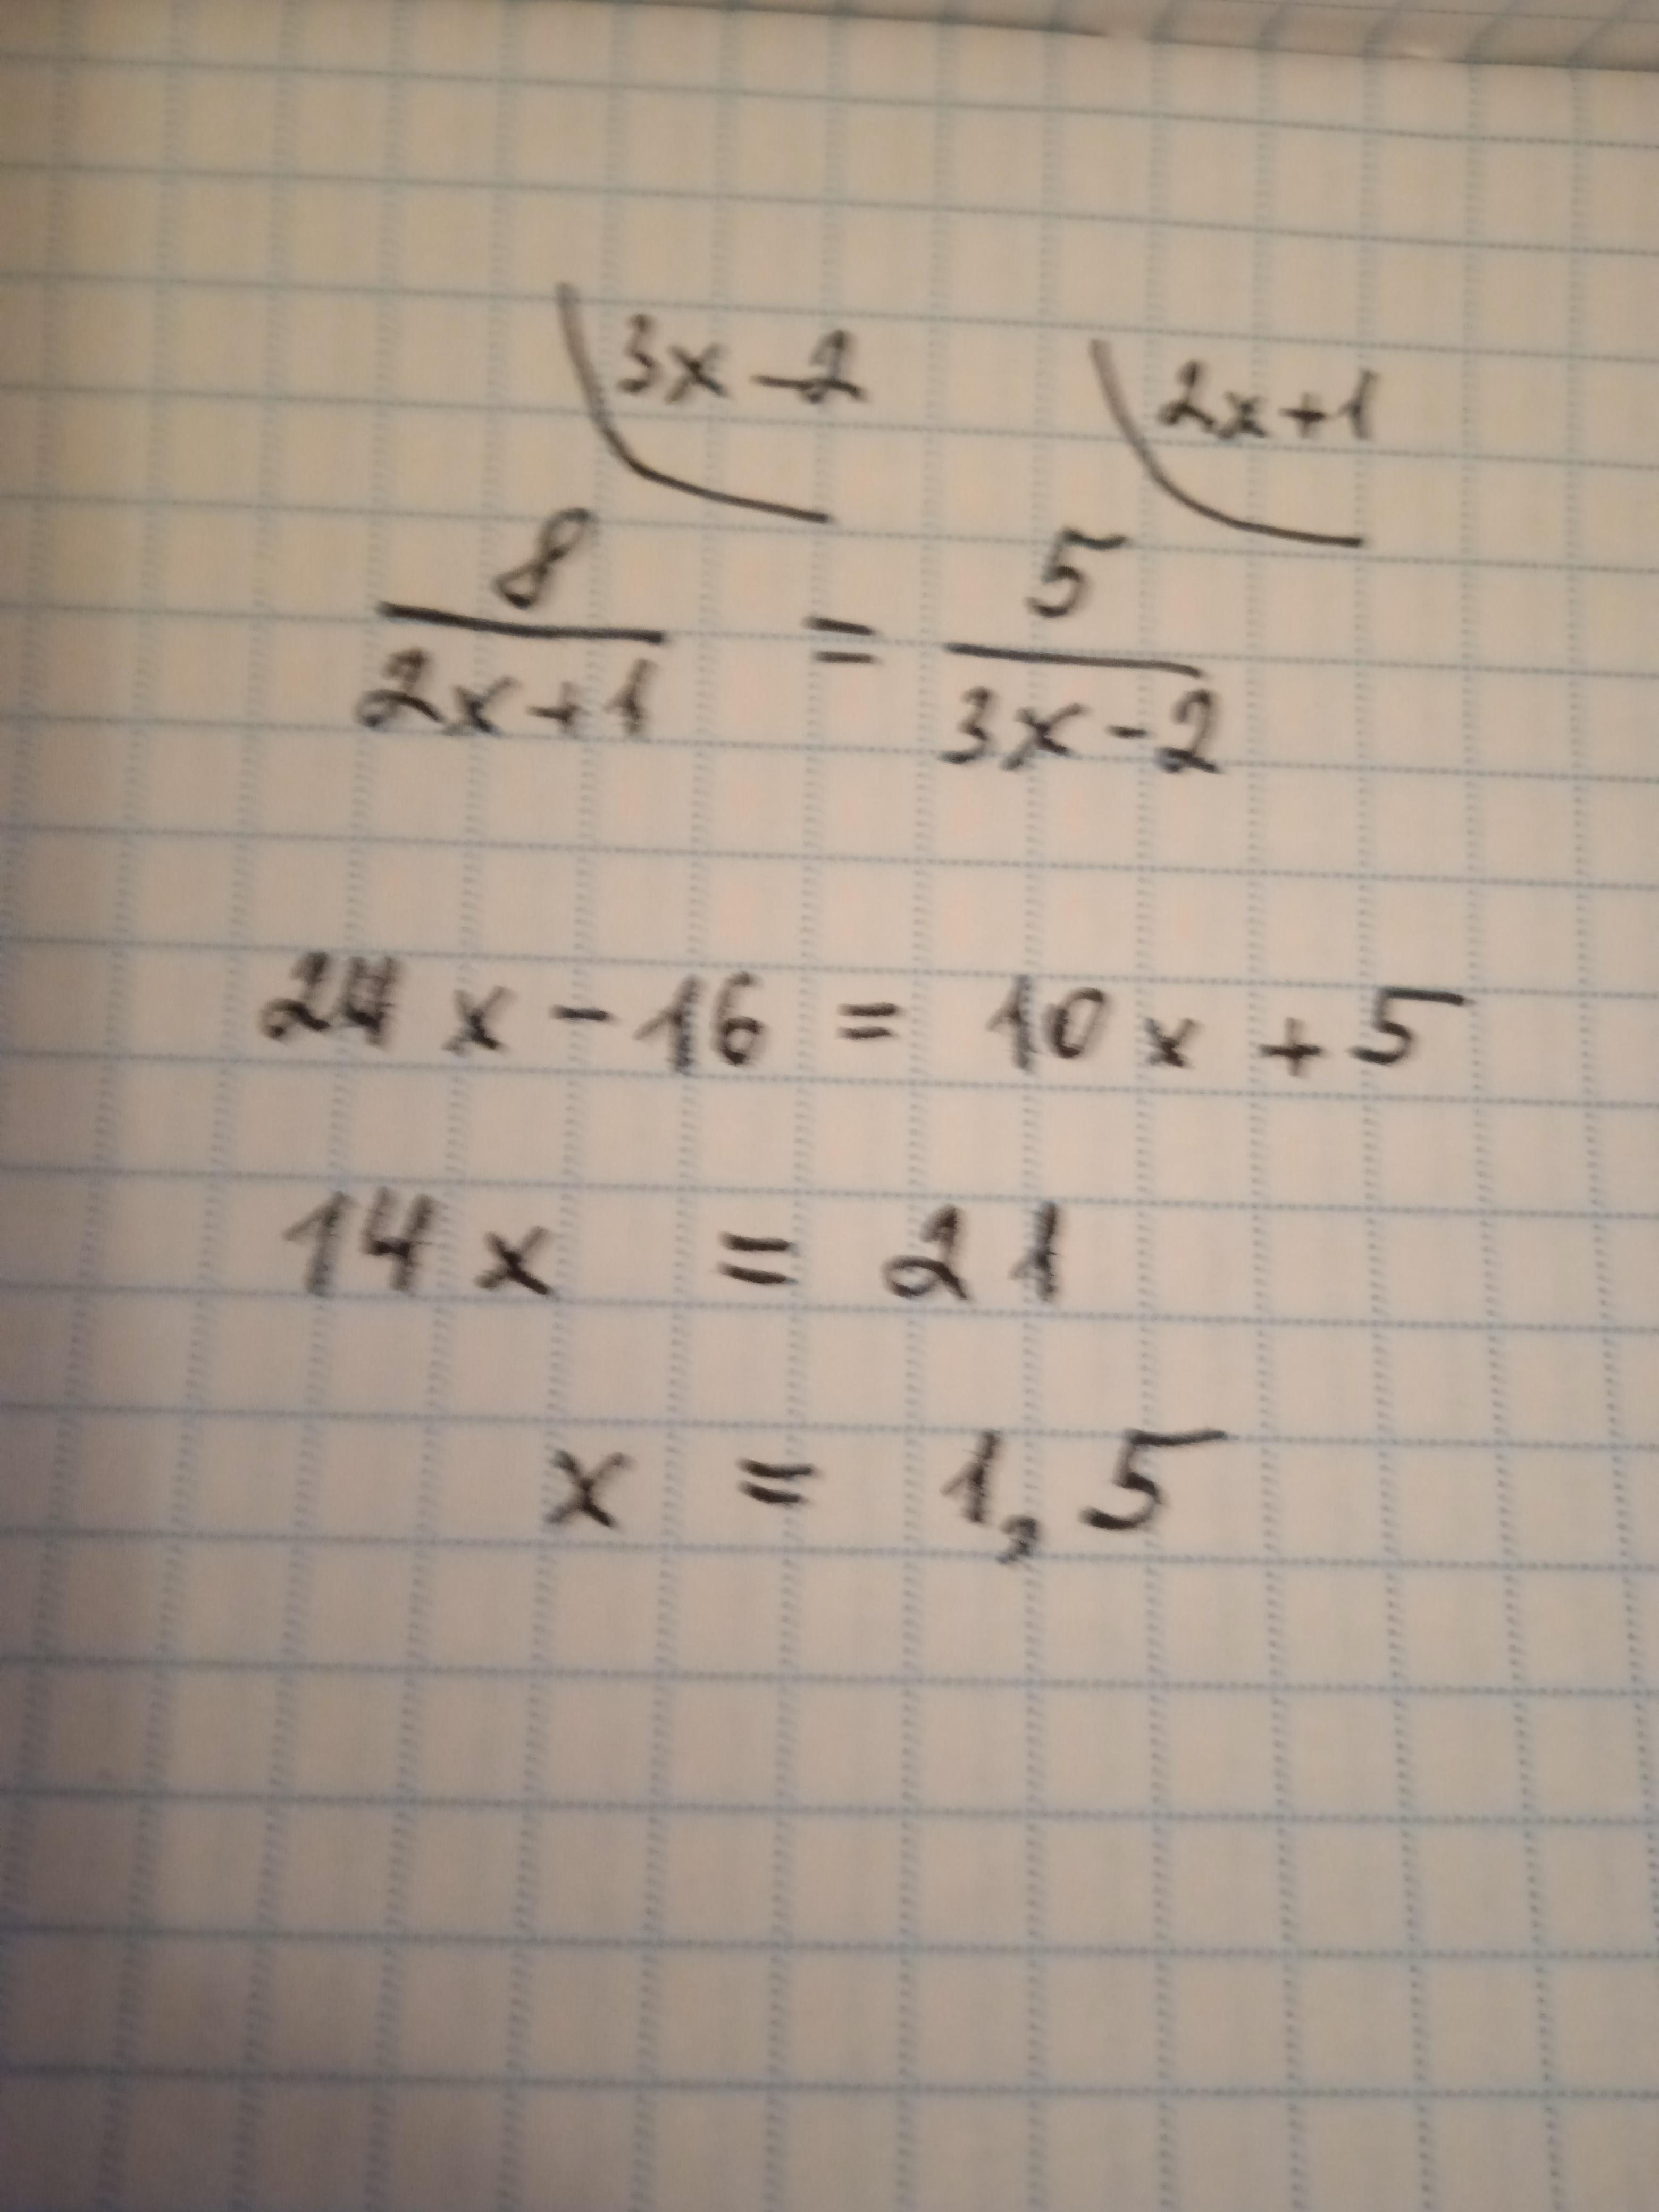 3x-2 2x+1
8/(2x+1) = 5/(3x-2)
24x-16 = 10x+5
14x = 21
x = 1,5